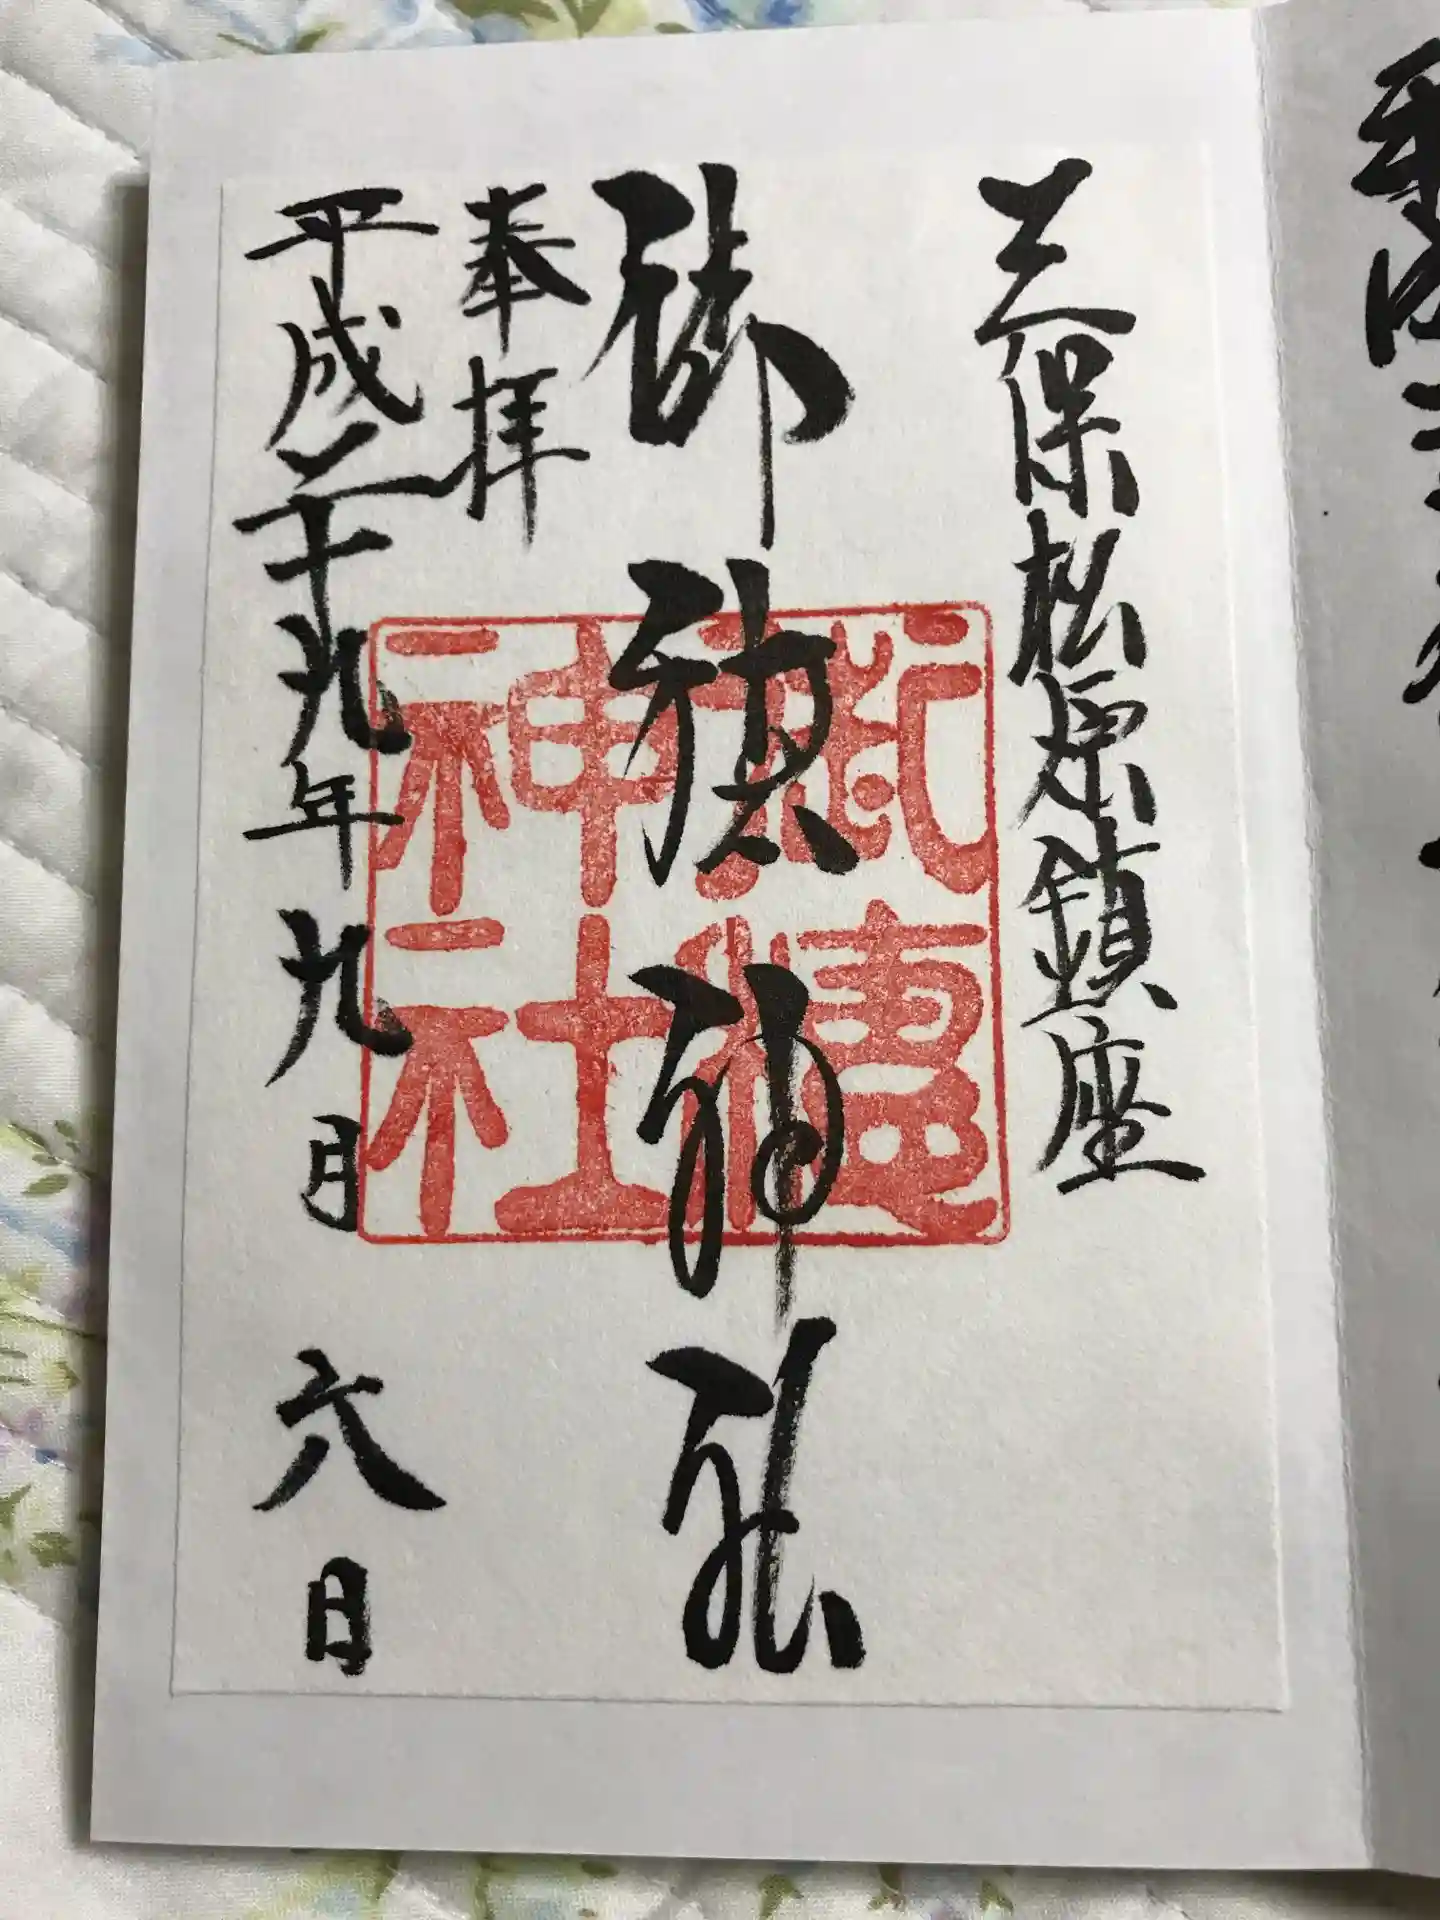 三保松原鎮座
御穂神社
奉拝
平成二十九年九月六日
御穂神社